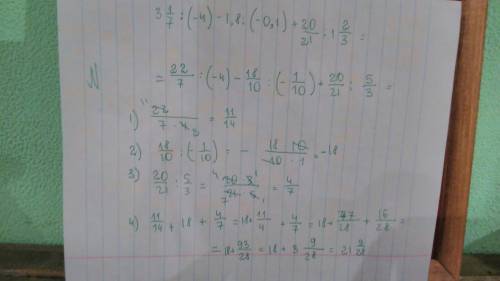 3 1/7 : (-4) - 1,8 : (-0,1) + 20/21 : 1 2/3 =
= 22/7 : (-4) - 18/10 : (-1/10) + 20/21 : 5/3 =
1) 22/7·4 = 11/14
2) 18/10 : (-1/10) = - 18·10/10·1 = -18
3) 20/21 : 5/3 = 20·3/21·5 = 4/7
4) 11/14 + 18 + 4/7 = 18 + 11/4 + 4/7 = 18 + 77/28 + 16/28 =
= 18 + 93/28 = 18 + 3 9/28 = 21 9/28